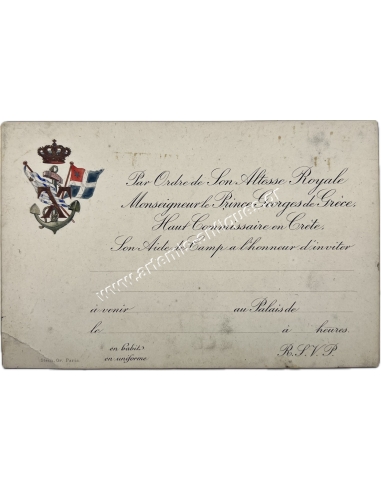 Par Ordre de Son Altesse Royale
Monseigneur le Prince Georges de Grèce,
Haut Commissaire en Crète,
Son Aide de Camp a l'honneur d'inviter
à venir au Palais de
le à heures.
en habit
ou uniforme
R.S.V.P.